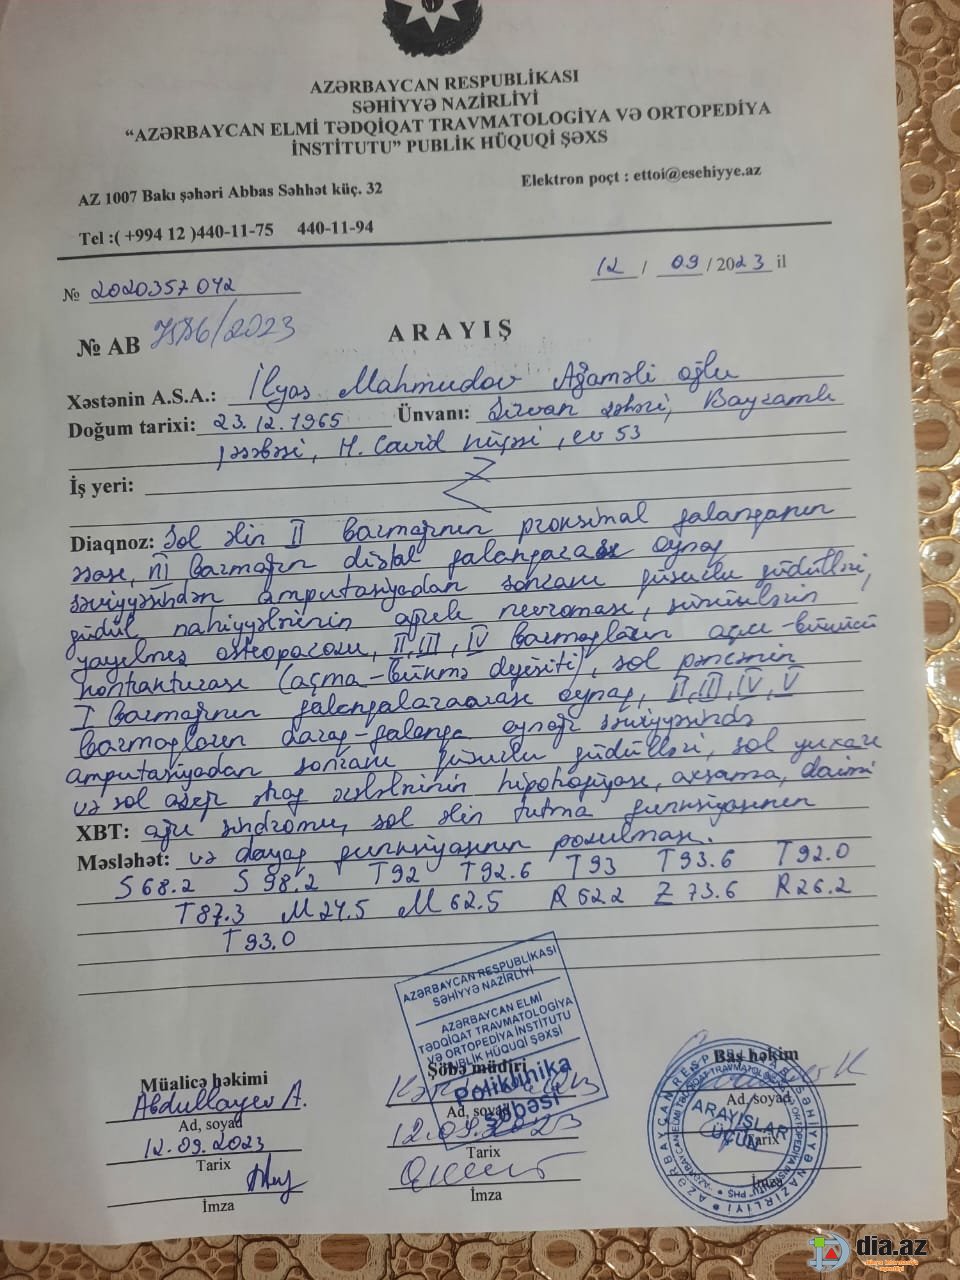 AZƏRBAYCAN RESPUBLİKASI
SƏHİYYƏ NAZİRLİYİ
“AZƏRBAYCAN ELMİ TƏDQİQAT TRAVMATOLOGİYA VƏ ORTOPEDİYA
İNSTİTUTU” PUBLİK HÜQUQİ ŞƏXS
AZ 1007 Bakı şəhəri Abbas Səhhət küç. 32
Elektron poçt : ettoi@esehiyye.az
Tel :( +994 12 )440-11-75 440-11-94
12 / 09 / 2023 il
№ 2020357042
№ AB 7586/2023
ARAYIŞ
Xəstənin A.S.A.: İlyas Mahmudov Ağaməli oğlu
Doğum tarixi: 23.12.1965 Ünvanı: Şirvan şəhəri, Bayramlı
H. Cavid küçəsi, ev 53
İş yeri:
Diaqnoz: Sol əlin II barmağının proksimal falanqanın
əsası, III barmağın distal falanqarası oynaq
səviyyəsindən amputasiyadan sonrakı qüsurlu güdülləri,
güdül nahiyyələrinin ağrılı nevroması, sümüklərin
yayılmış osteoporozu, II, III, IV barmaqların açıcı-bükücü
kontrakturası (açma-bükmə defisiti), sol pəncənin
I barmağının falanqalararası oynaq, II, III, IV, V
barmaqların daraq-falanqa oynağı səviyyəsində
amputasiyadan sonrakı qüsurlu güdülləri, sol yuxarı
və sol aşağı ətraf əzələlərinin hipotrofiyası, axsama, daimi
XBT: ağrı sindromu, sol əlin tutma funksiyasının
Məsləhət: və dayaq funksiyasının pozulması.
S 68.2 S 98.2 T92 T92.6 T93 T93.6 T92.0
T87.3 M24.5 M 62.5 R 52.2 Z 73.6 R26.2
T93.0
AZƏRBAYCAN RESPUBLİKASI
SƏHİYYƏ NAZİRLİYİ
AZƏRBAYCAN ELMİ
TƏDQİQAT TRAVMATOLOGİYA
VƏ ORTOPEDİYA İNSTİTUTU
PUBLİK HÜQUQİ ŞƏXSİ
Poliklinika
şöbəsi
Müalicə həkimi
Abdullayev A.
Ad, soyad
12.09.2023
Tarix
İmza
Şöbə müdiri
Ad, soyad
12.09.2023
Tarix
İmza
Baş həkim
Ad, soyad
Tarix
İmza
ARAYIŞLAR
ÜÇÜN
dia.az